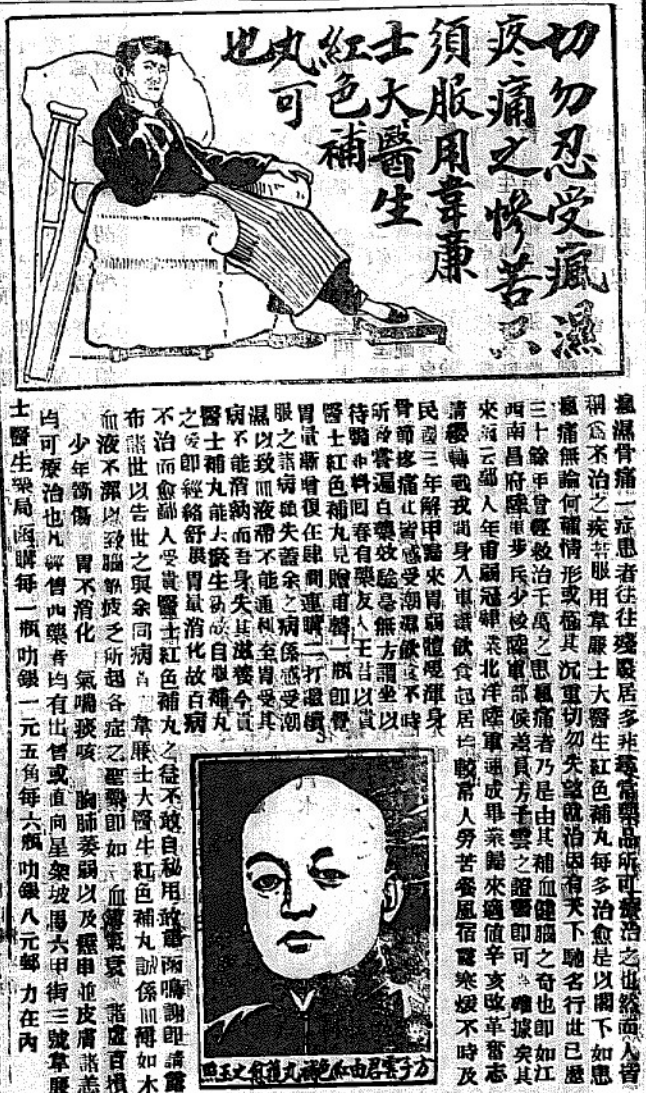 切勿忍受瘋濕
疼痛之慘苦只
須服用韋廉
士大醫生
紅色補
丸可
也
瘋濕骨痛一症患者往往殘廢居多非尋常藥品所可療治之也然而人皆
稱爲不治之疾若服用韋廉士大醫生紅色補丸每多治愈是以閣下如患
瘋痛無論何種情形或極其沉重切勿失望就治因有天下馳名行世已歷
三十餘年曾經救治千萬之患瘋痛者乃是由其補血健腦之奇也即如江
西南昌府陸軍步兵少校陸軍部候差員方子雲之證書即可為確據矣其
來函云鄙人年甫弱冠肄業北洋陸軍速成畢業歸來適値辛亥改革奮志
請纓轉戰戎間身入軍讖飲食起居均較常人勞苦餐風宿露寒煖不時及
民國三年解甲歸來胃弱體瘦渾身
骨節疼痛此皆感受潮濕飲食不時
所致嘗遍百藥效驗毫無方謂坐以
待斃不料回春有藥友人王君以貴
醫士紅色補丸見贈甫罄一瓶即覺
胃量漸增復在肆間連購一打繼續
服之諸病雖失蓋余之病係感受潮
濕以致血液滯不能通利至胃受其
病不能消納而吾身失其滋養今貴
醫士補丸能去瘀生新故自服補丸
之後即經絡舒展胃量消化故百病
不治而愈鄙人受貴醫士紅色補丸之益不敢自秘用敢肅函鳴謝即請露
布諸世以告世之與余同病者 韋廉士大醫生紅色補丸誠係血薄如水
血液不潔以致腦筋疲乏所起各症之聖藥即如 血薄氣衰 諸虛百損
少年斲傷 胃不消化 氣喘痰咳 胸肺萎弱以及 並皮膚諸恙
均可療治也凡經售西藥者均有出售或直向星架坡 六甲街三號韋廉
士醫生藥局函購每一瓶叻銀一元五角每六瓶叻銀八元郵力在內
方子雲君由紅色補丸獲愈之玉照